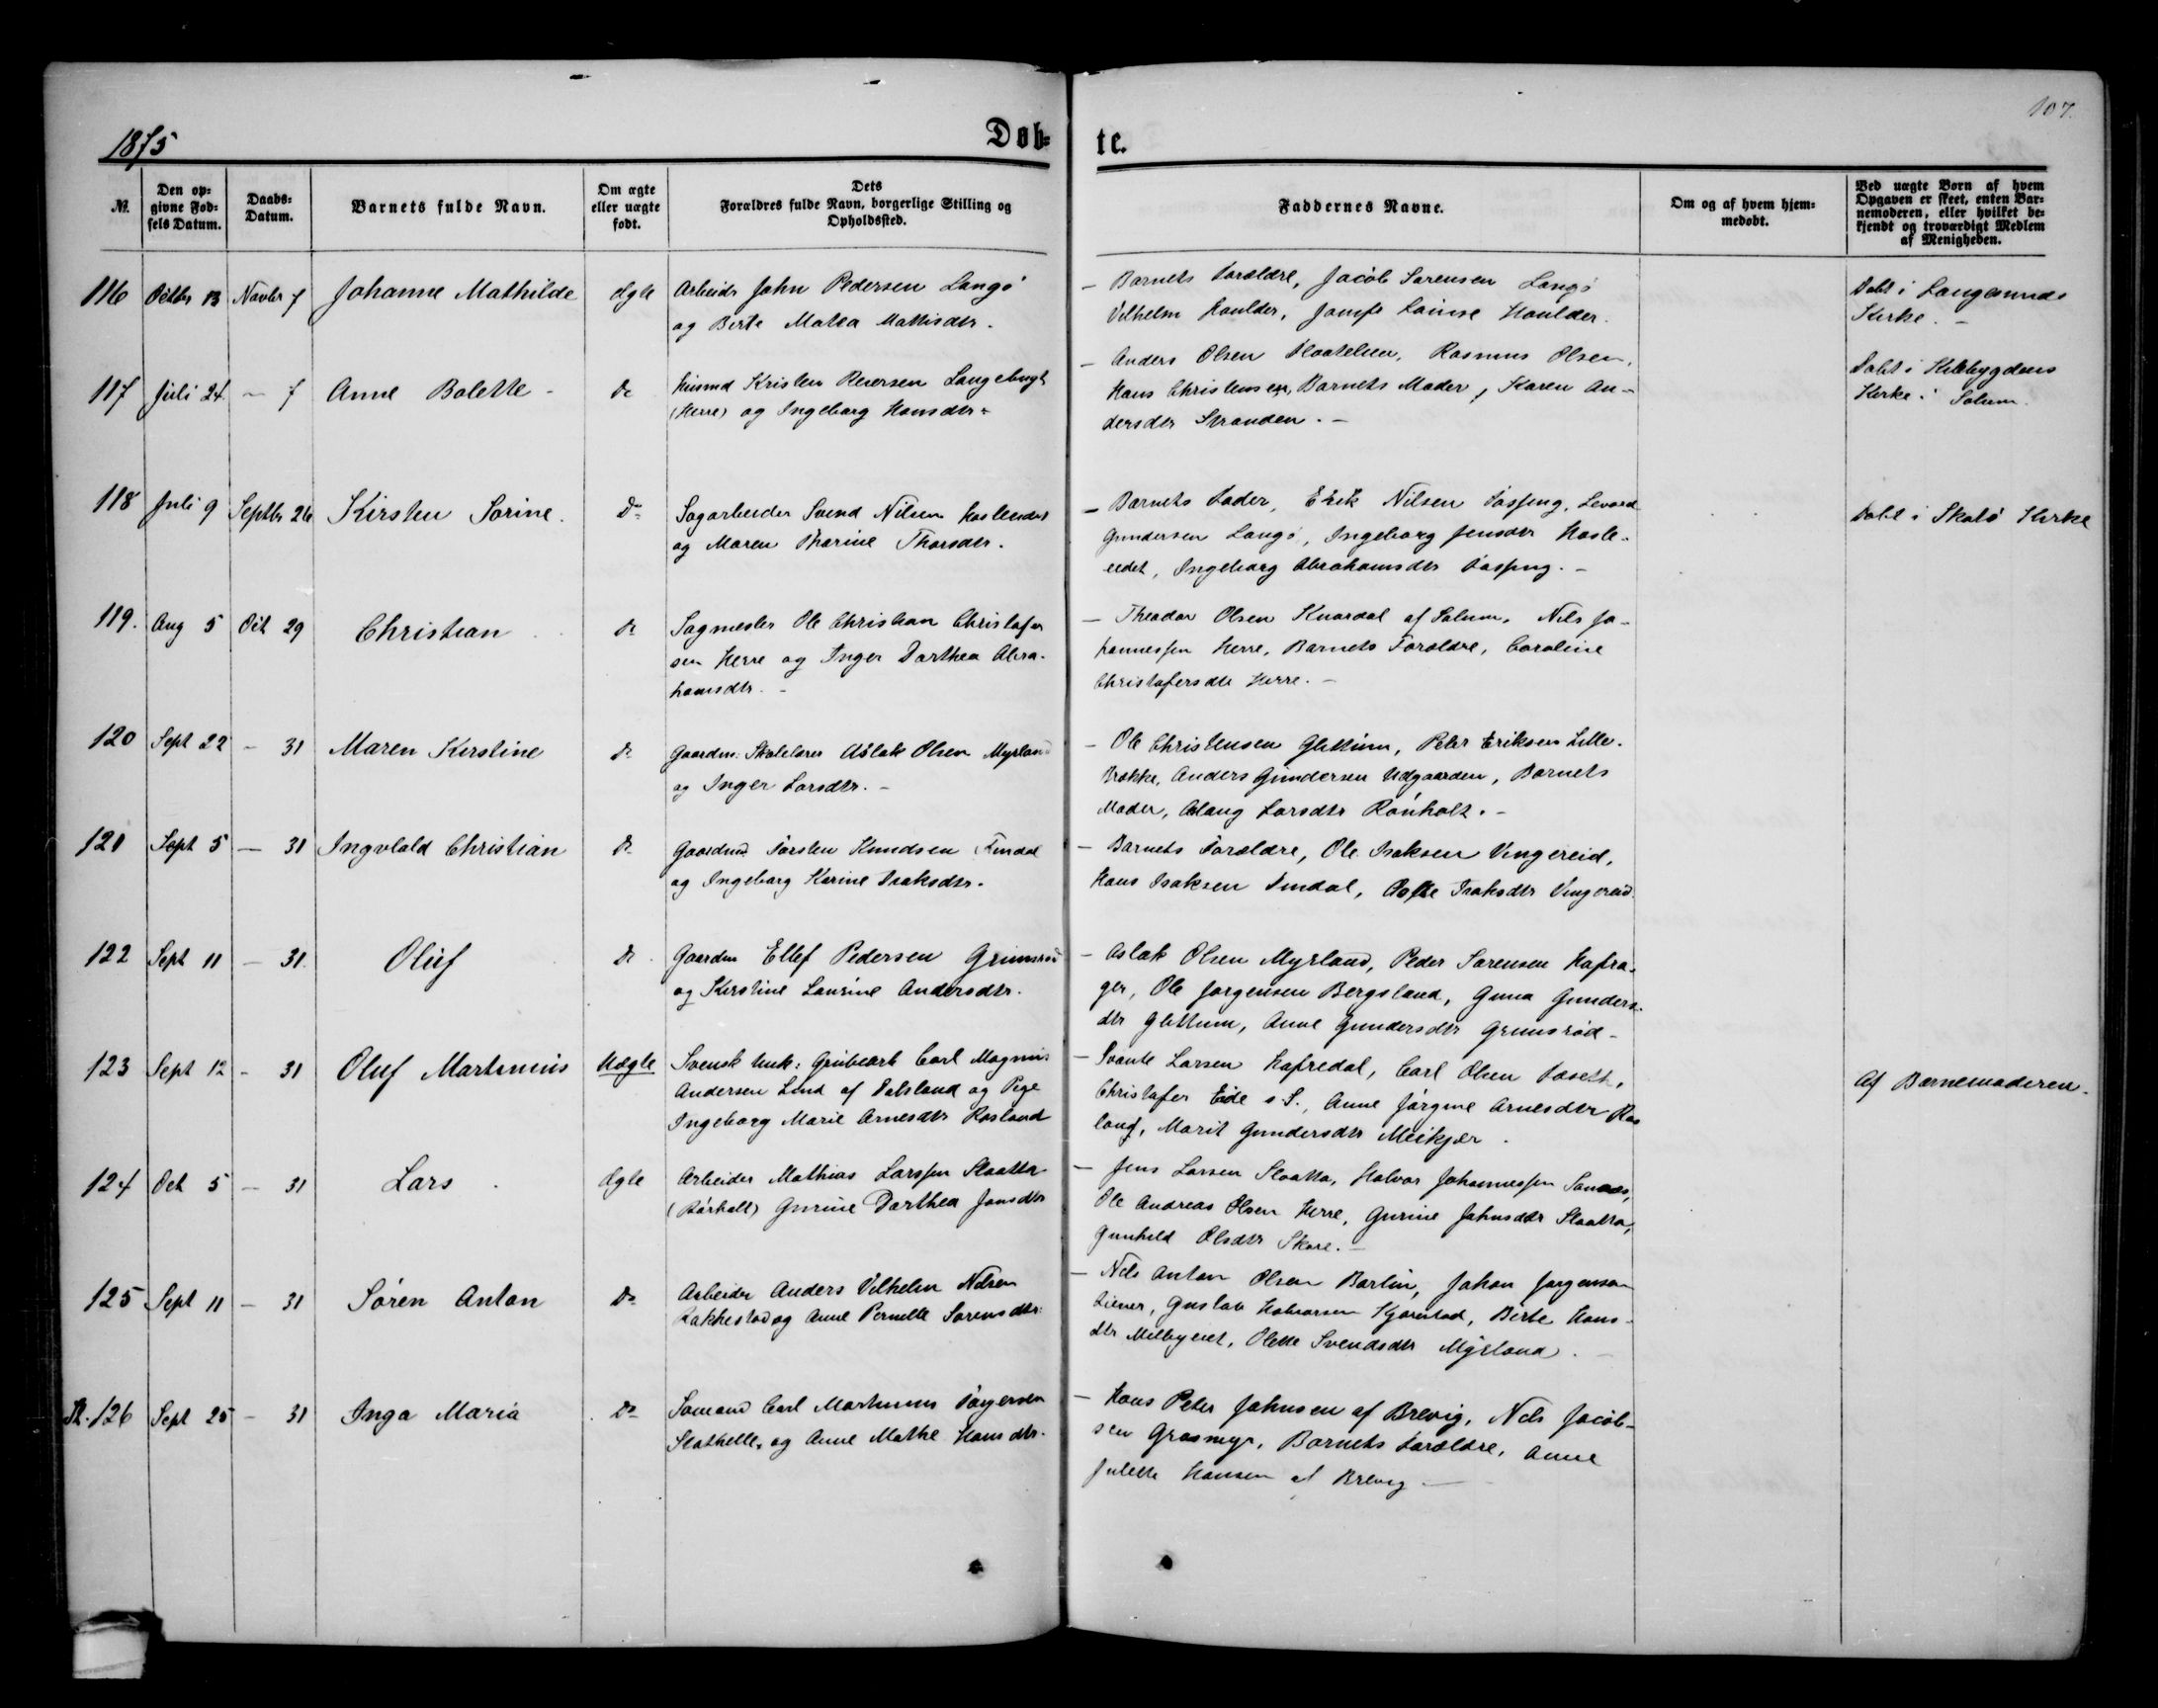 107.
1875
Døb-
te.
№.
Den op-
givne Fød-
sels Datum.
Daabs-
Datum.
Barnets fulde Navn.
Om ægte
eller uægte
født.
Dets
Forældres fulde Navn, borgerlige Stilling og
Opholdssted.
Faddernes Navne.
Om og af hvem hjem-
medøbt.
Ved uægte Børn af hvem
Opgaven er skeet, enten Bar-
nemoderen, eller hvilket be-
kjendt og troværdigt Medlem
af Menigheden.
116 Octbr 13 Novbr 7 Johanne Mathilde Ægte
Arbeidr John Pedersen Langø
og Berte Matea Mathisdtr.
— Barnets Forældre, Jacob Sørensen Langø
Vilhelm Houlder, Jomfr Louise Houlder.
Døbt i Langesunds
Kirke. —
117 Juli 24 — 7 Anne Bolette - Do
Husmd Kristen Reiersen Langebugt
(Herre) og Ingeborg Hansdtr -
— Anders Olsen Rasmus Olsen,
Hans Christensen, Barnets Moder, Karen An-
dersdtr Stranden. —
Døbt i Kilebygdens
Kirke i Solum.
118 Juli 9 Septbr 26 Kirsten Sørine. Do
Sagarbeider Svend Nilsen
og Maren Thorine Thorsdtr.
— Barnets Fader, Erik Nilsen
Gundersen Langø, Ingeborg Jensdtr Hasle-
eidet, Ingeborg Abrahamsdtr —
Døbt i Skatø Kirke
119. Aug 5 Oct 29 Christian Do
Sagmester Ole Christian Christofer
sen Herre og Inger Dorthea Abra-
hamsdtr. -
— Theodor Olsen Knardal af Solum, Nils Jo-
hannessen Herre, Barnets Forældre, Caroline
Christofersdtr Herre. —
120 Sept 22 — 31 Maren Kirstine Do
Gaardm: Skolelærer Aslak Olsen Myrland
og Inger Larsdtr. -
— Ole Christensen Glittum, Peter Eriksen Lille-
Brække, Anders Gundersen Udgaarden, Barnets
Moder, Aslaug Larsdtr Rønholt. -
121 Sept 5 — 31 Ingvlald Christian Do
Gaardmd Torsten Knudsen Findal
og Ingeborg Karine Isaksdtr.
— Barnets Forældre, Ole Isaksen Vingereid,
Hans Isaksen Findal, Isaksdtr Vingereid
122 Sept 11 — 31. Oluf Do
Gaardm Ellef Pedersen Grimsrød
og Kirstine Laurine Andersdtr.
— Aslak Olsen Myrland, Peder Sørensen Hafra-
ger, Ole Jørgensen Bergsland, Gunders-
dtr Glittum, Anne Gundersdtr Grimsrød -
123 Sept 12 - 31 Oluf Martinius Uægte
Svensk Unk: Grubearb Carl Magnus
Andersen Lind af Dalsland og Pige
Ingeborg Marie Arnesdtr Rosland
— Svante Larsen Hafredal, Carl Olsen
Christofer Eide s S., Anne Jørgine Arnesdtr Ros
land, Marit Gundersdtr Meikjær.
Af Barnemoderen.
124 Oct 5 — 31 Lars. Ægte
Arbeider Mathias Larssen Slaatta
(Rørholt) Gurine Dorthea Jonsdtr
— Jens Larsen Slaatta, Halvor Johannessen
Ole Andreas Olsen Herre, Gurine Johnsdtr Slaatta,
Gunhild Olsdtr —
125 Sept 11 — 31 Søren Anton Do
Arbeider Anders Vilhelm Nilsen
Rakkestad og Anne Pernille Sørensdtr.
— Nils Anton Olsen Johan Jørgensen
Gustav Halvorsen Kjørstad, Birte Hans-
dtr Olette Svendsdtr Myrland. —
126 Sept 25 — 31 Inga Maria Do
Sømand Carl Martinius
Stathelle, og Anne Mathe Hansdtr.
— Hans Peter Johnsen af Brevig, Nils Jacob-
sen Grasmyr, Barnets Forældre, Anne
Julette Hansen af Brevig —